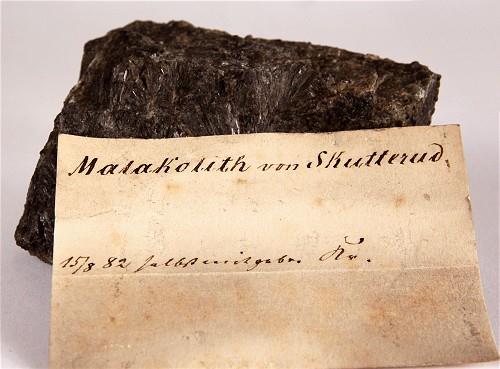 Malakolith von Skutterud.
15/8 82 selbst mitgebr. Kr.